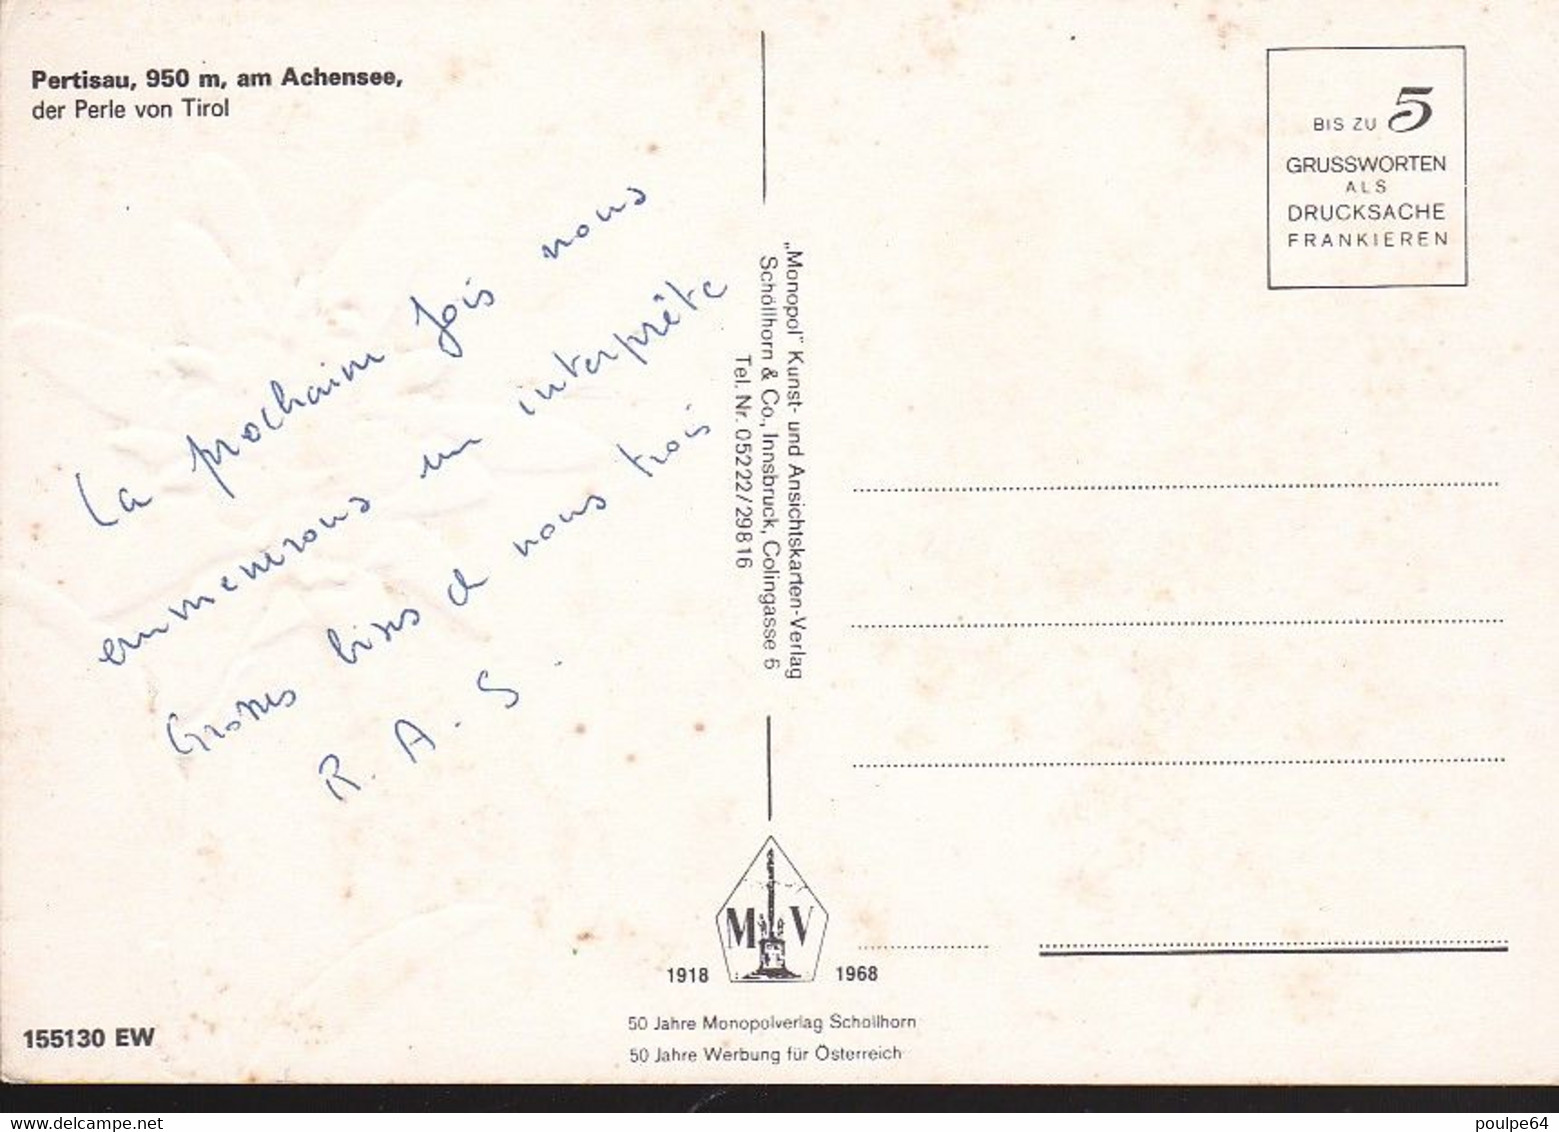 Pertisau, 950 m, am Achensee,
der Perle von Tirol
La prochaine fois nous
emmenerons un interprête
Grosses bises de nous trois
R. A. S.
„Monopol" Kunst- und Ansichtskarten-Verlag
Schöllhorn & Co., Innsbruck, Colingasse 6
Tel. Nr. 05222/29816
BIS ZU 5
GRUSSWORTEN
ALS
DRUCKSACHE
FRANKIEREN
M V
1918 1968
50 Jahre Monopolverlag Schöllhorn
50 Jahre Werbung für Österreich
155130 EW
poulpe64